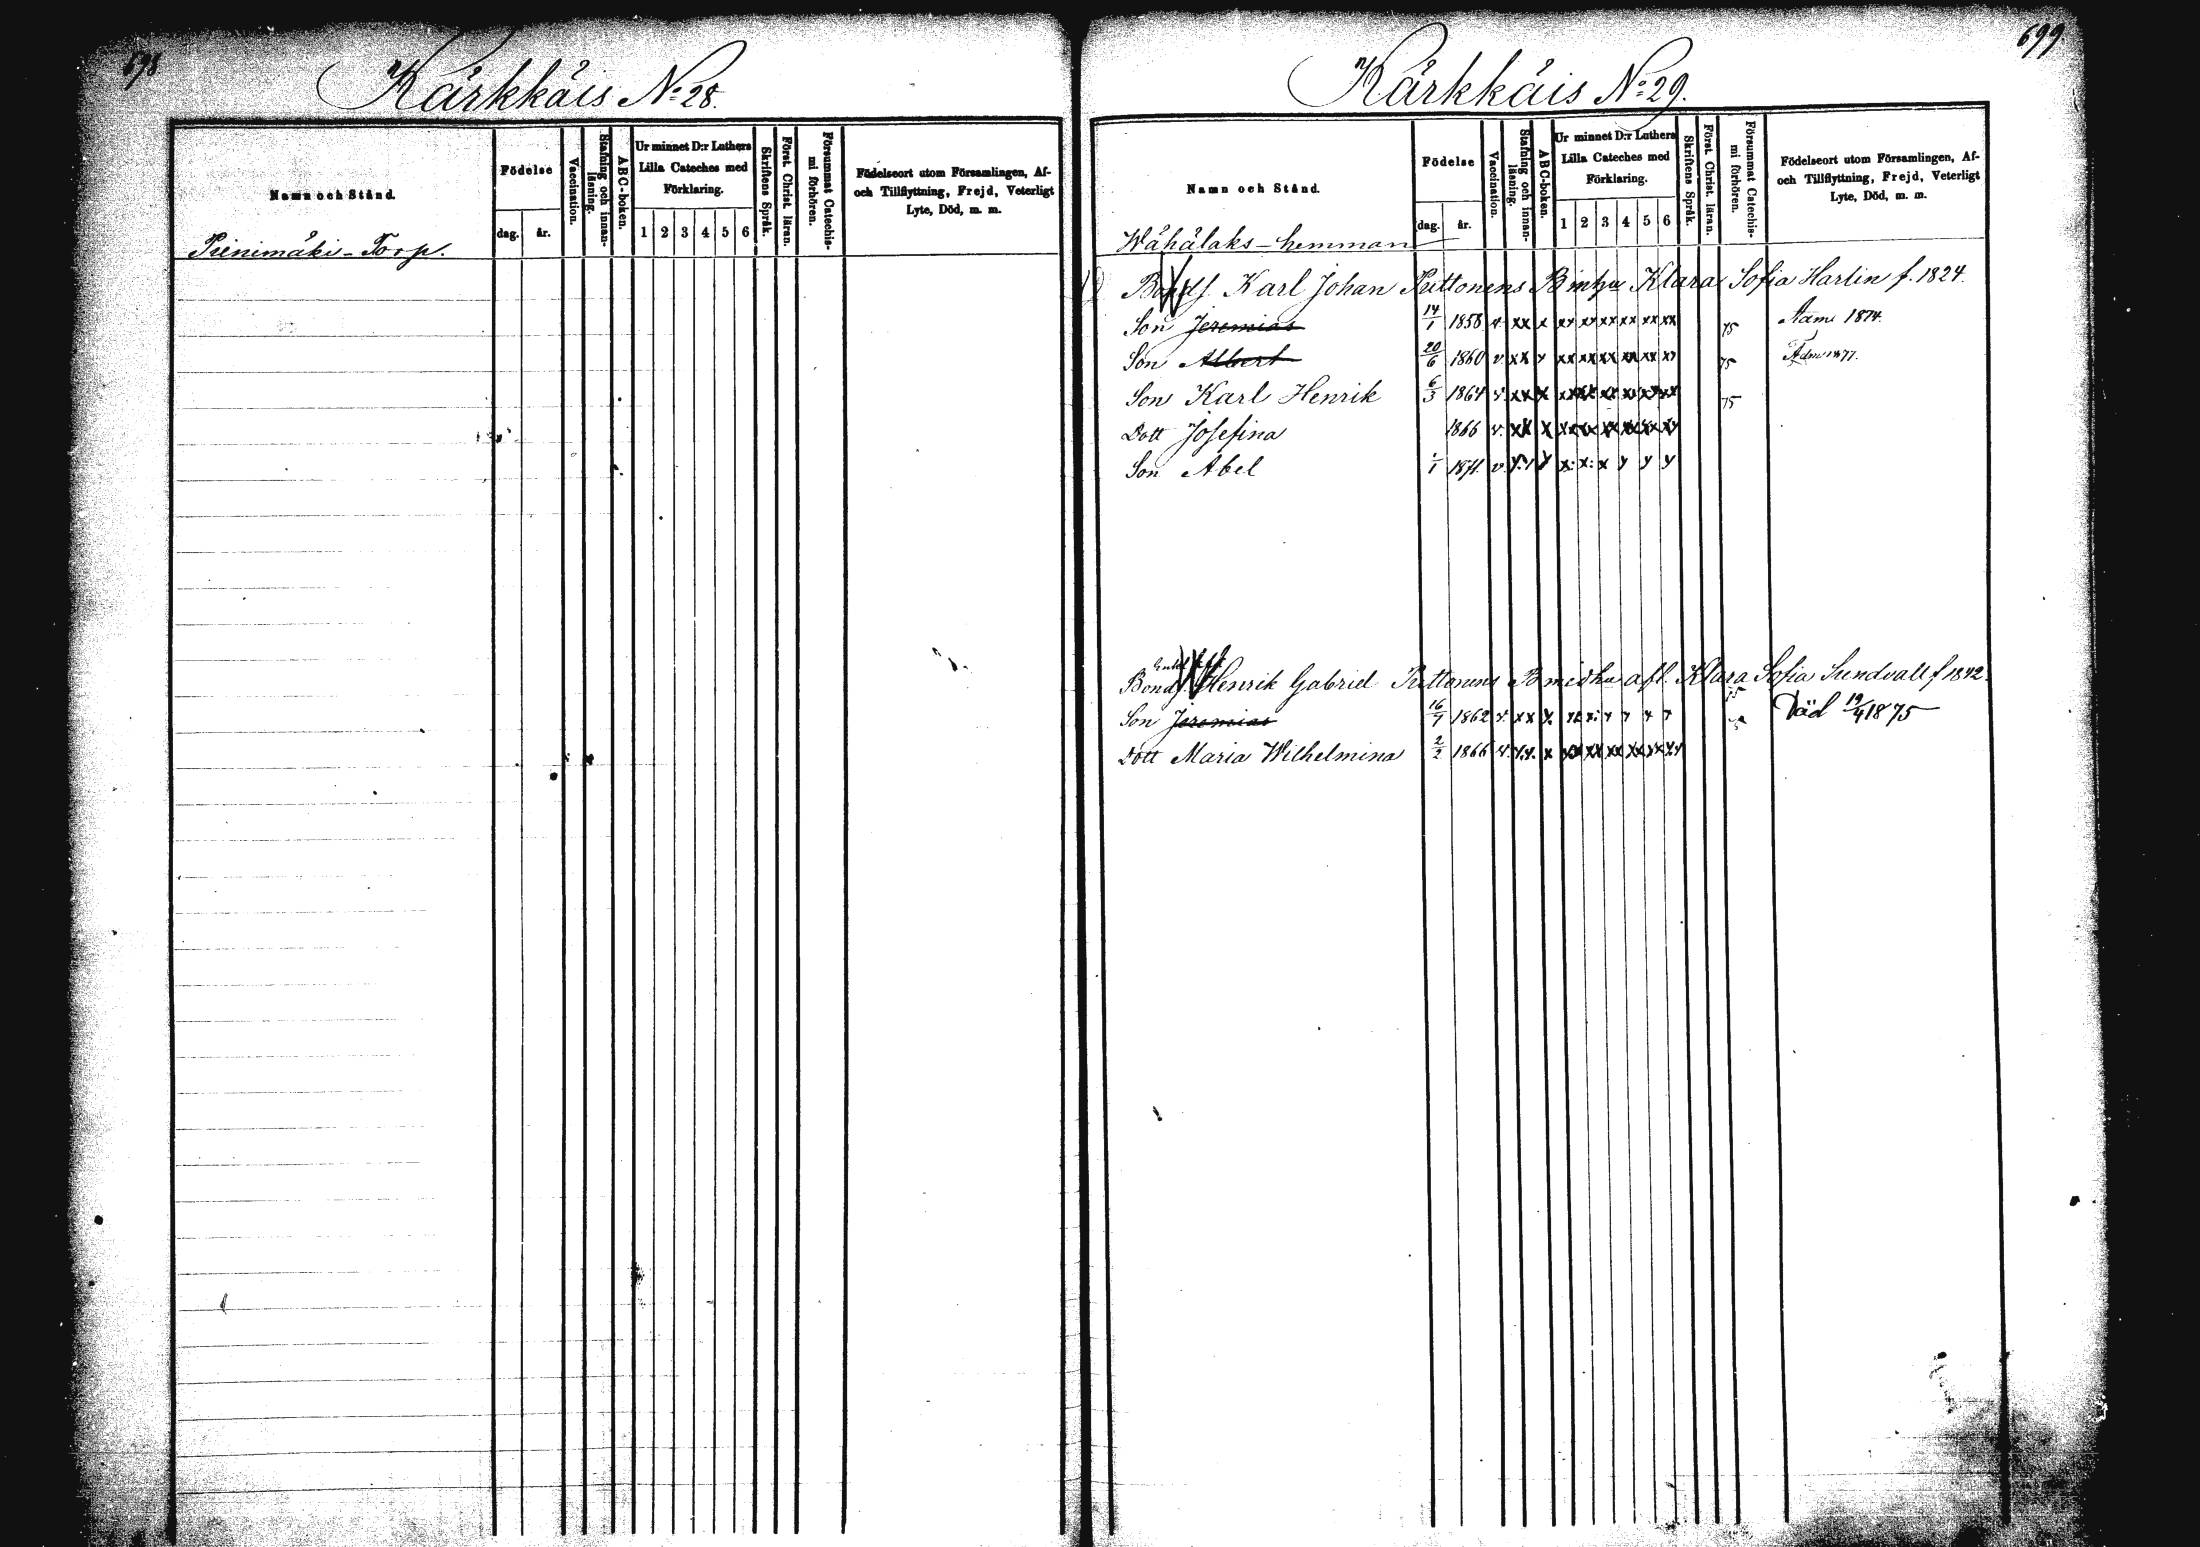 698
Kärkkäis No 28.
Namn och Stånd.
Födelse
dag.
år.
Vaccination.
Stafning och innan-
läsning.
ABC-boken.
Ur minnet D:r Luthers
Lilla Cateches med
Förklaring.
1 2 3 4 5 6
Skriftens Språk.
Först. Christ. läran.
Försummat Catechis-
mi förhören.
Födelseort utom Församlingen, Af-
och Tillflyttning, Frejd, Veterligt
Lyte, Död, m. m.
Pienimäki-Torp.
699
Kärkkäis No 29.
Namn och Stånd.
Födelse
dag.
år.
Vaccination.
Stafning och innan-
läsning.
ABC-boken.
Ur minnet D:r Luthers
Lilla Cateches med
Förklaring.
1 2 3 4 5 6
Skriftens Språk.
Först. Christ. läran.
Försummat Catechis-
mi förhören.
Födelseort utom Församlingen, Af-
och Tillflyttning, Frejd, Veterligt
Lyte, Död, m. m.
Wähälaks-hemman
Karl Johan Puttonens Klara Sofia Harlin f. 1824.
Son Jeremias 14/1 1858 v. xx x xx xx xx xx xx xx 75 1874.
Son Albert 20/6 1860 v xx x xx xx xx xx xx xx 75 Adm 1877.
Son Karl Henrik 6/3 1864 v. xx x xx xx xx xx xx xx 75
Dott Josefina 1866 v. xx x xx xx xx xx xx xx
Son Abel 1871. v.
Henrik Gabriel Puttonens afl. Klara Sofia Sundvall f 1842.
Son Jeremias 16/7 1862 v. xx x Död 19/4 1875
Dott Maria Wilhelmina 2/2 1866 v. x.x. x xx xx xx xx xx xx